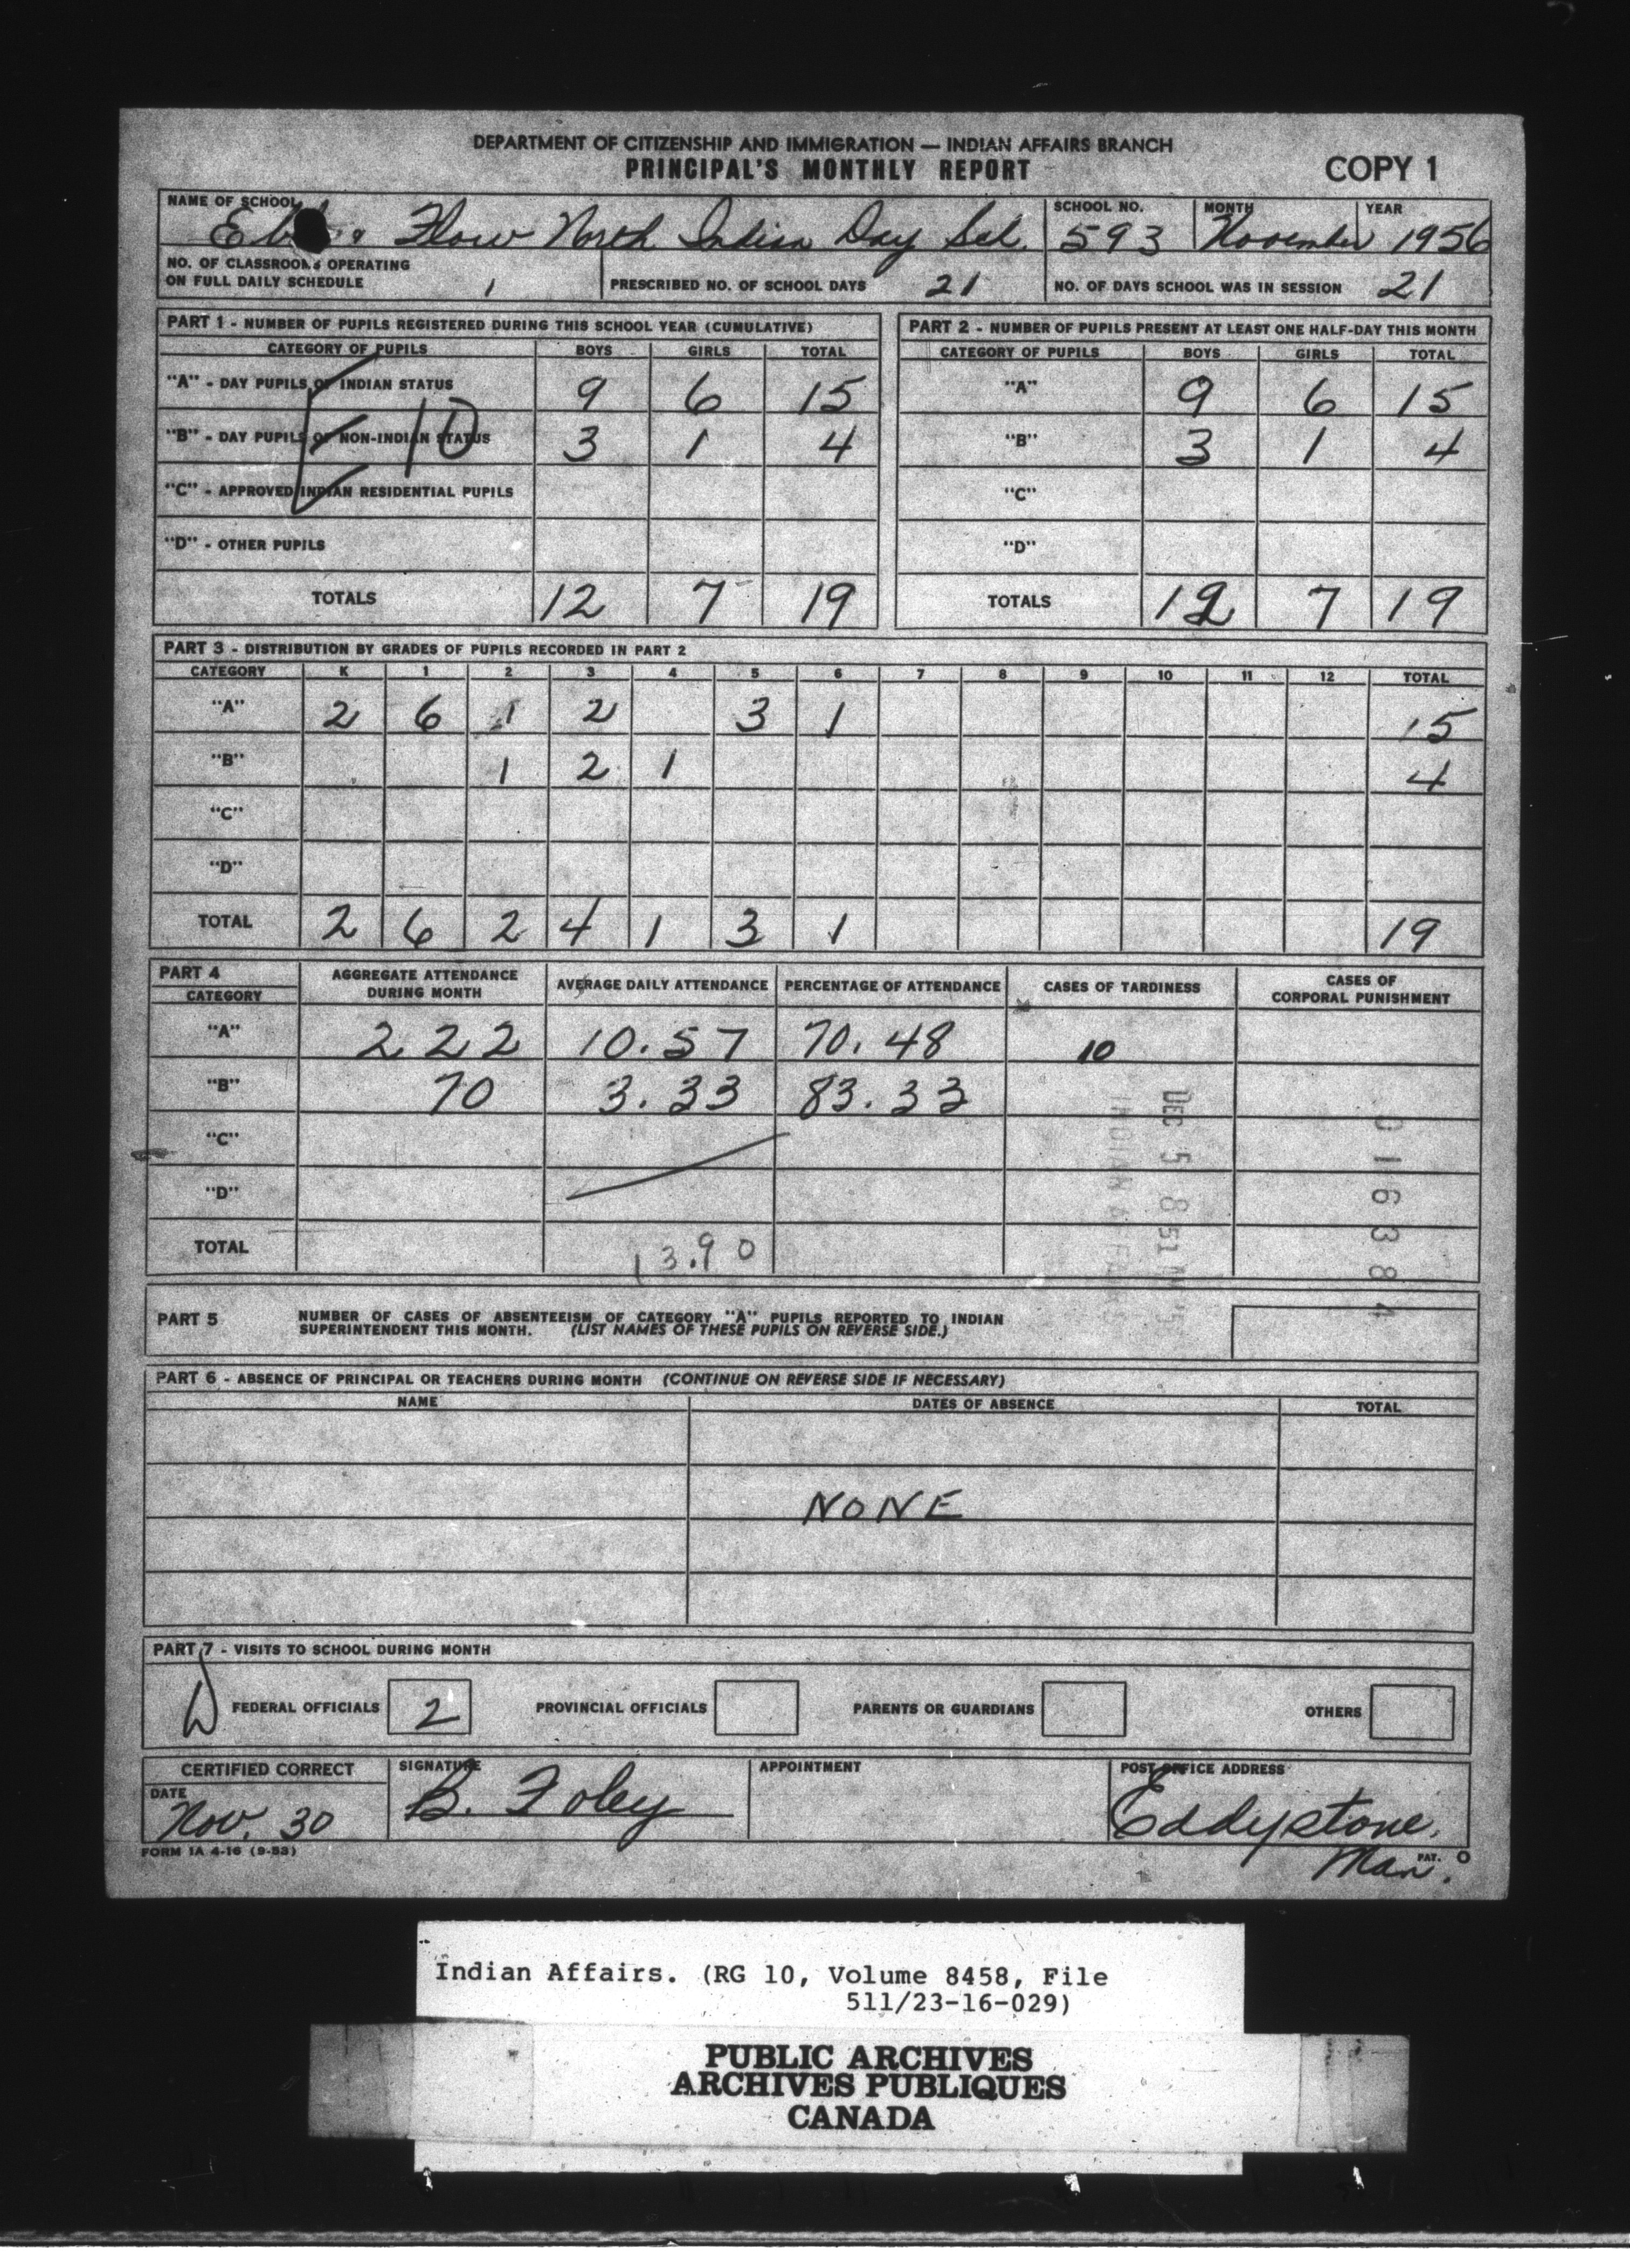 DEPARTMENT OF CITIZENSHIP AND IMMIGRATION — INDIAN AFFAIRS BRANCH
PRINCIPAL'S MONTHLY REPORT
COPY 1
NAME OF SCHOOL SCHOOL NO. MONTH YEAR
Flow North Indian Day Scl. 593 November 1956
NO. OF CLASSROOMS OPERATING
ON FULL DAILY SCHEDULE 1 PRESCRIBED NO. OF SCHOOL DAYS 21 NO. OF DAYS SCHOOL WAS IN SESSION 21
PART 1 - NUMBER OF PUPILS REGISTERED DURING THIS SCHOOL YEAR (CUMULATIVE)
CATEGORY OF PUPILS BOYS GIRLS TOTAL
"A" - DAY PUPILS OF INDIAN STATUS 9 6 15
"B" - DAY PUPILS OF NON-INDIAN STATUS 3 1 4
10
"C" - APPROVED INDIAN RESIDENTIAL PUPILS
"D" - OTHER PUPILS
TOTALS 12 7 19
PART 2 - NUMBER OF PUPILS PRESENT AT LEAST ONE HALF-DAY THIS MONTH
CATEGORY OF PUPILS BOYS GIRLS TOTAL
"A" 9 6 15
"B" 3 1 4
"C"
"D"
TOTALS 12 7 19
PART 3 - DISTRIBUTION BY GRADES OF PUPILS RECORDED IN PART 2
CATEGORY K 1 2 3 4 5 6 7 8 9 10 11 12 TOTAL
"A" 2 6 1 2 3 1 15
"B" 1 2 1 4
"C"
"D"
TOTAL 2 6 2 4 1 3 1 19
PART 4
CATEGORY AGGREGATE ATTENDANCE DURING MONTH AVERAGE DAILY ATTENDANCE PERCENTAGE OF ATTENDANCE CASES OF TARDINESS CASES OF CORPORAL PUNISHMENT
"A" 222 10.57 70.48 10
"B" 70 3.33 83.33
"C"
"D"
TOTAL 13.90
DEC 5 8 51
016384
PART 5 NUMBER OF CASES OF ABSENTEEISM OF CATEGORY "A" PUPILS REPORTED TO INDIAN
SUPERINTENDENT THIS MONTH. (LIST NAMES OF THESE PUPILS ON REVERSE SIDE.)
PART 6 - ABSENCE OF PRINCIPAL OR TEACHERS DURING MONTH (CONTINUE ON REVERSE SIDE IF NECESSARY)
NAME DATES OF ABSENCE TOTAL
NONE
PART 7 - VISITS TO SCHOOL DURING MONTH
FEDERAL OFFICIALS 2 PROVINCIAL OFFICIALS PARENTS OR GUARDIANS OTHERS
CERTIFIED CORRECT SIGNATURE APPOINTMENT POST OFFICE ADDRESS
DATE
Nov. 30 B. Foley Eddystone,
Man.
FORM IA 4-16 (9-53) PAT. O
Indian Affairs. (RG 10, Volume 8458, File
511/23-16-029)
PUBLIC ARCHIVES
ARCHIVES PUBLIQUES
CANADA